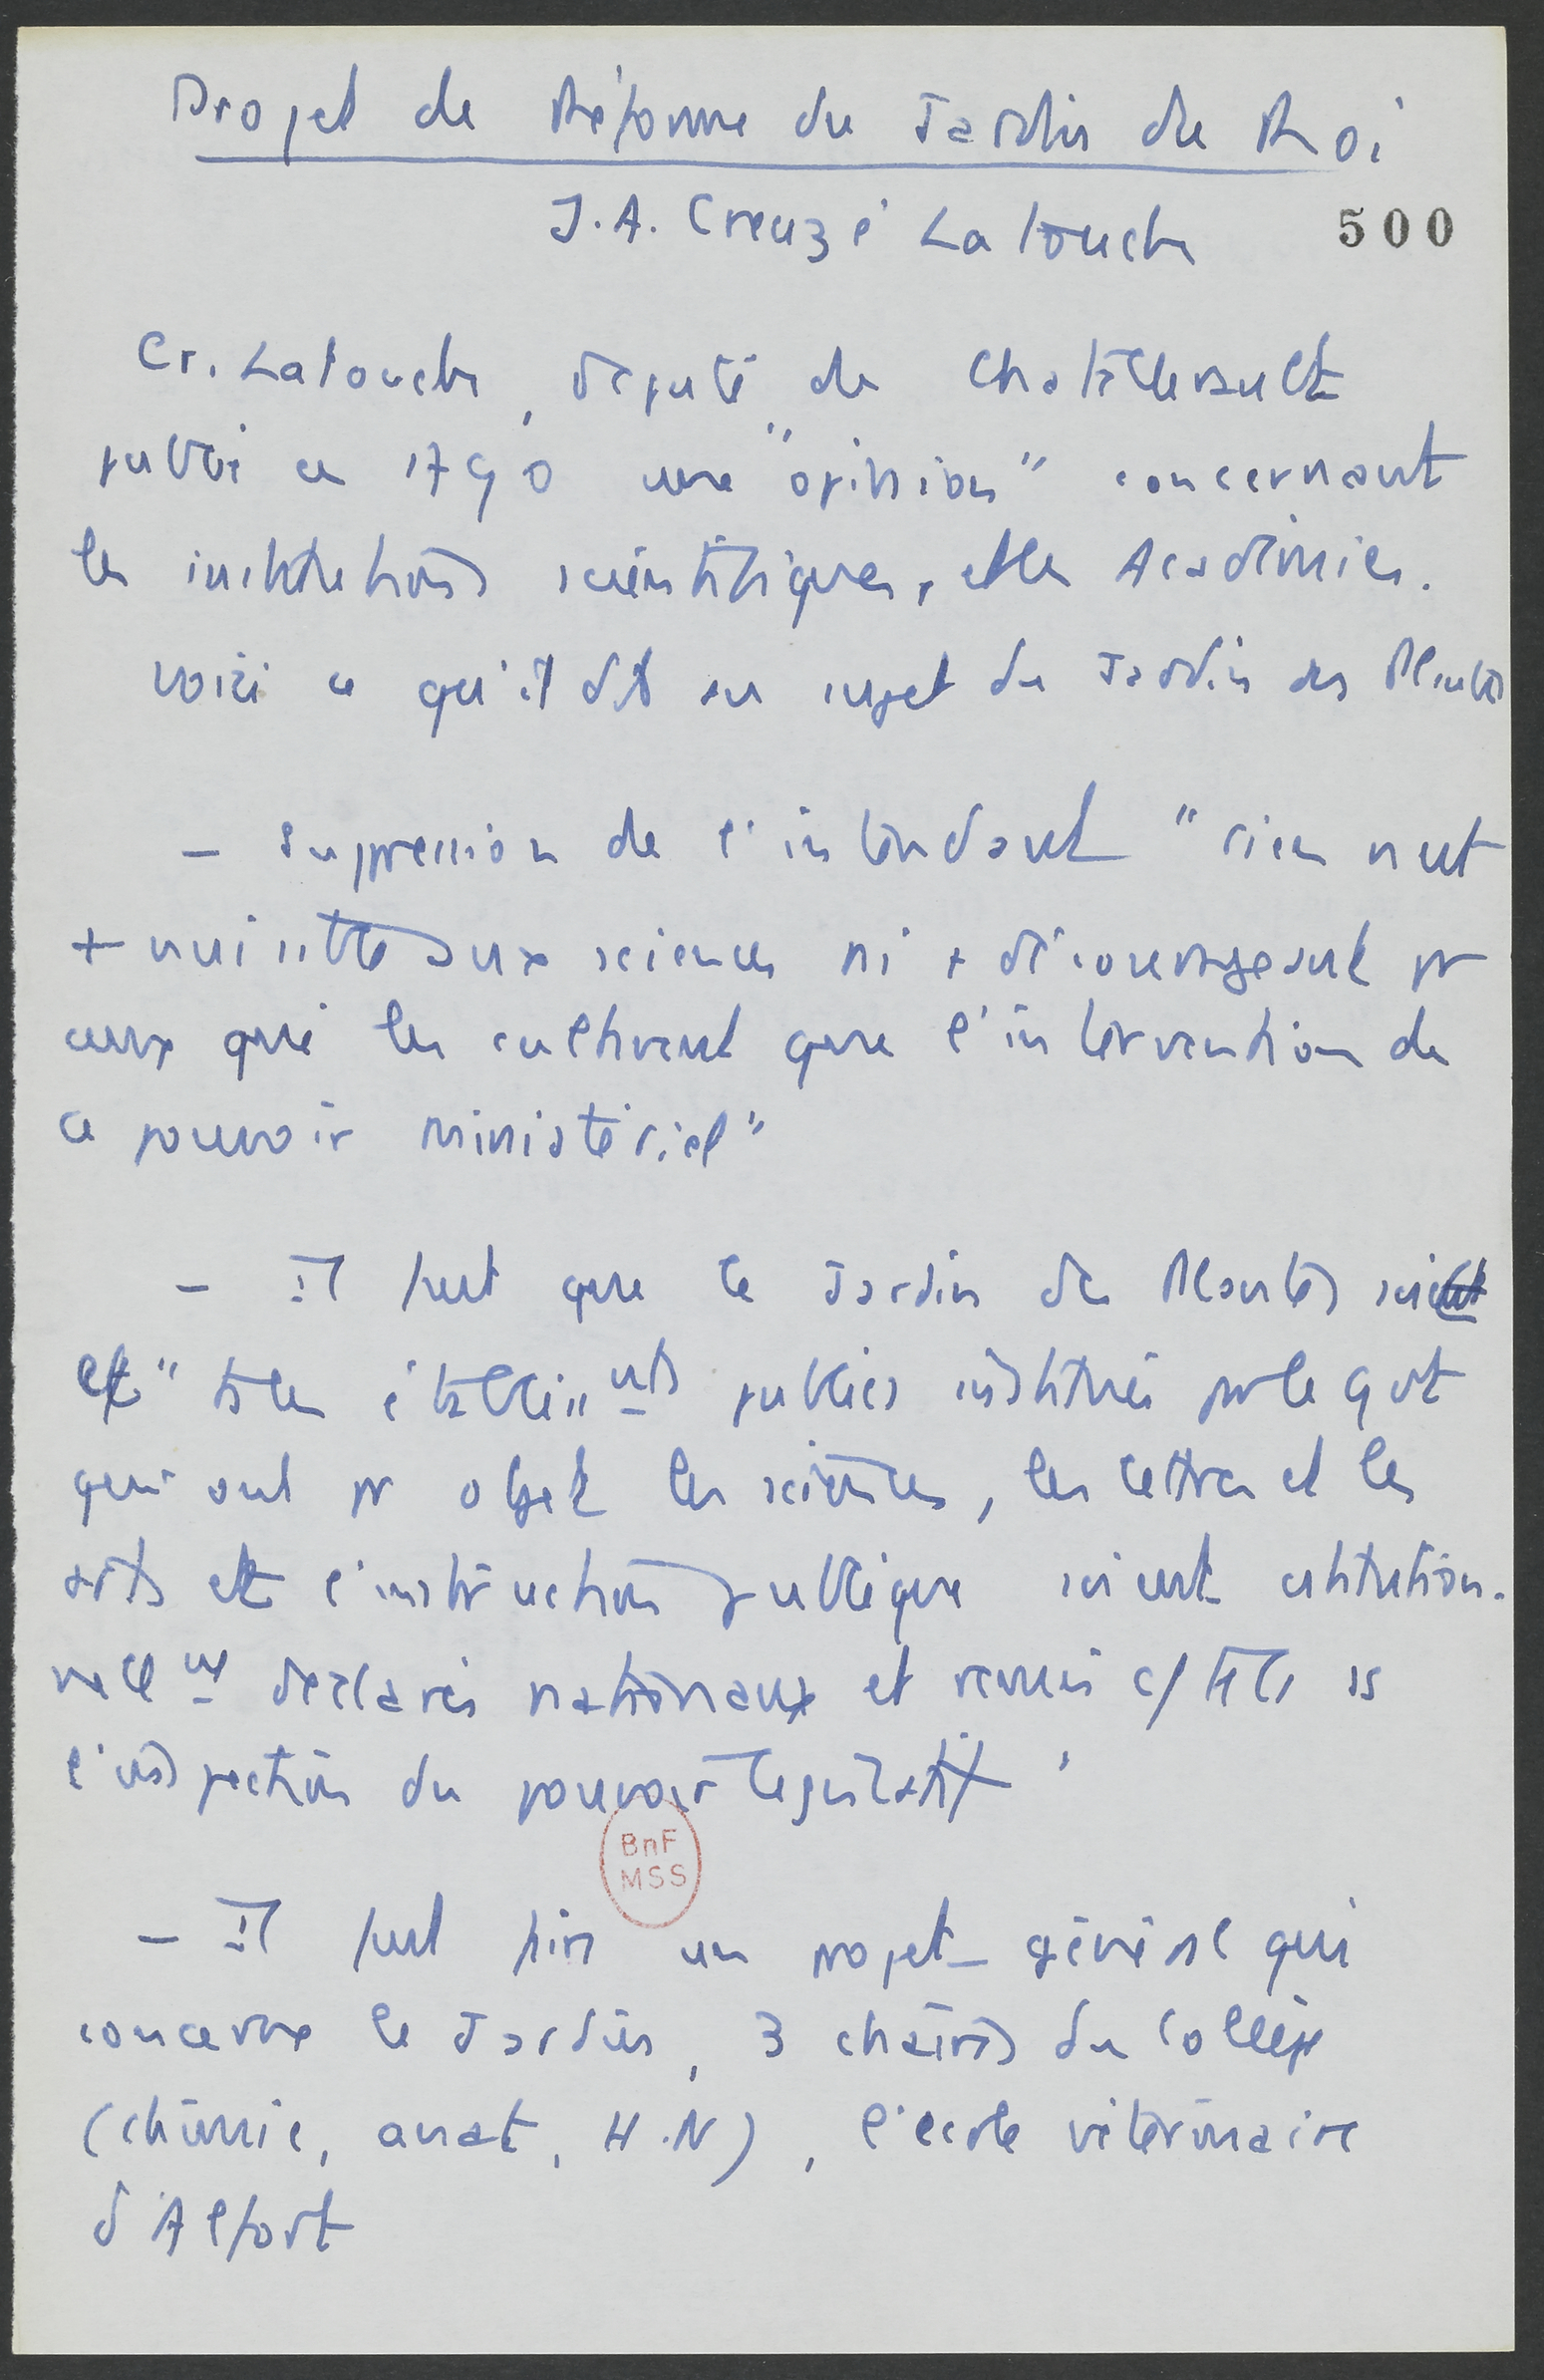 Projet de Réforme du Jardin du Roi
J.A. Creuzé Latouche
500
Cr. Latouche, député de Chatellerault
publie en 1790 une "opinion" concernant
les institutions scientifiques, et les Académies.
voici ce qu'il dit au sujet du Jardin des Plantes
- suppression de l'intendant "rien n'est
+ nuisible aux sciences ni + décourageant pr
ceux qui les cultivent que l'intervention de
ce pouvoir ministériel"
- Il faut que le Jardin des Plantes
et " ts les établiss nts publics institués par le gvt
qui ont pr objet les sciences, les lettres et les
arts et l'instruction publique soient cstitution-
nell nt déclarés nationaux et remis c/ tels ss
l'inspection du pouvoir législatif"
BnF
MSS
- Il faut faire un projet général qui
concerne le Jardin, 3 chaires du Collège
(chimie, anat, H.N), l'école vétérinaire
d'Alfort